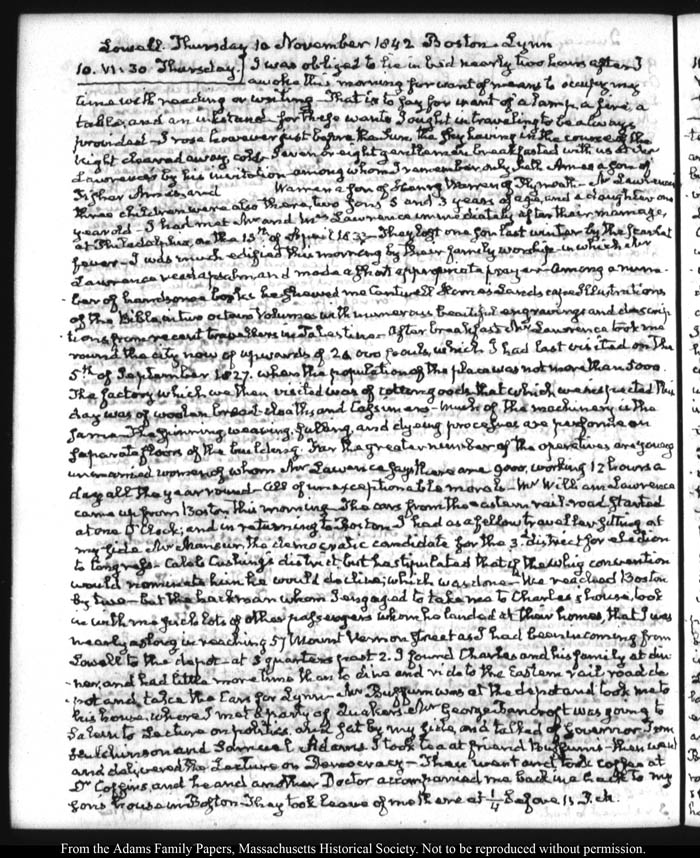 Lowell. Thursday 10 November 1842 Boston. Lynn
10. VI. 30. Thursday. I was obliged to lie in bed nearly two hours after I
awoke this morning for want of means to occupy my
time with reading or writing. That is to say for want of a lamp, a fire, a
table, and an inkstand for these wants I ought in traveling to be always
provided. I rose however just before the Sun, the sky having in the course of the
night cleared away cold. Seven or eight gentlemen breakfasted with us at Mr
Lawrence's by his invitation among whom I remember only Seth Ames a son of
Fisher Ames, and Warren a son of Henry Warren of Plymouth. Mr Lawrence's
three children were also there, two sons 5 and 3 years of age, and a daughter one
year old. I had met Mr and Mrs Lawrence immediately after their marriage,
at Philadelphia, on the 13th of April 183 They lost one son last winter by the scarlet
fever. I was much edified this morning by their family worship in which Mr
Lawrence read a psalm and made a short appropriate prayer. Among a num-
ber of handsome books he showed me Landscape illustrations
of the Bible in two octavo volumes with numerous beautiful engravings and descrip-
tions from recent travellers in Palestine. After breakfast Mr Lawrence took me
round the city now of upwards of 20 000 souls, which I had last visited on the
5th of September 1827. when the population of the place was not more than 5000.
The factory which we then visited was of cotton goods that which we inspected this
day was of woolen broad-cloaths, and Casimers. much of the machinery is the
same. The spinning, weaving, fulling, and dyeing processes are performed on
separate floors of the building. Far the greater number of the operatives are young
unmarried women of whom Mr Lawrence says there are 9000, working 12 hours a
day all the year round. All of unexceptionable morals. Mr William Lawrence
came up from Boston this morning. The cars from the eastern rail-road started
at one O'Clock; and in returning to Boston I had as a fellow traveller sitting at
my side Mr Mansur, the democratic candidate for the 3d district for election
to Congress. Caleb Cushing's district but has stipulated that if the Whig convention
would nominate him he would decline; which was done. We reached Boston
by two. but the hackman whom I engaged to take me to Charles's house, took
in with me such lots of other passengers whom he landed at their homes, that I was
nearly as long in reaching 57 Mount Vernon street as I had been in coming from
Lowell to the depot. at 3 quarters past 2. I found Charles and his family at din-
ner, and had little more time than to dine and ride to the Eastern rail road de-
pot and take the Cars for Lynn. Mr Buffum was at the depot and took me to
his house, where I met a party of Quakers. Mr George Bancroft was going to
Salem to Lecture on politics, and sat by my side, and talked of Governor Tom
Hutchinson and Samuel Adams. I took tea at friend Buffum's then went
and delivered the Lecture on Democracy. Then went and took coffee at
Dr Coffin's, and he and another Doctor accompanied me back to my
son's house in Boston. They took leave of me there at 1/4 before 11
From the Adams Family Papers, Massachusetts Historical Society. Not to be reproduced without permission.